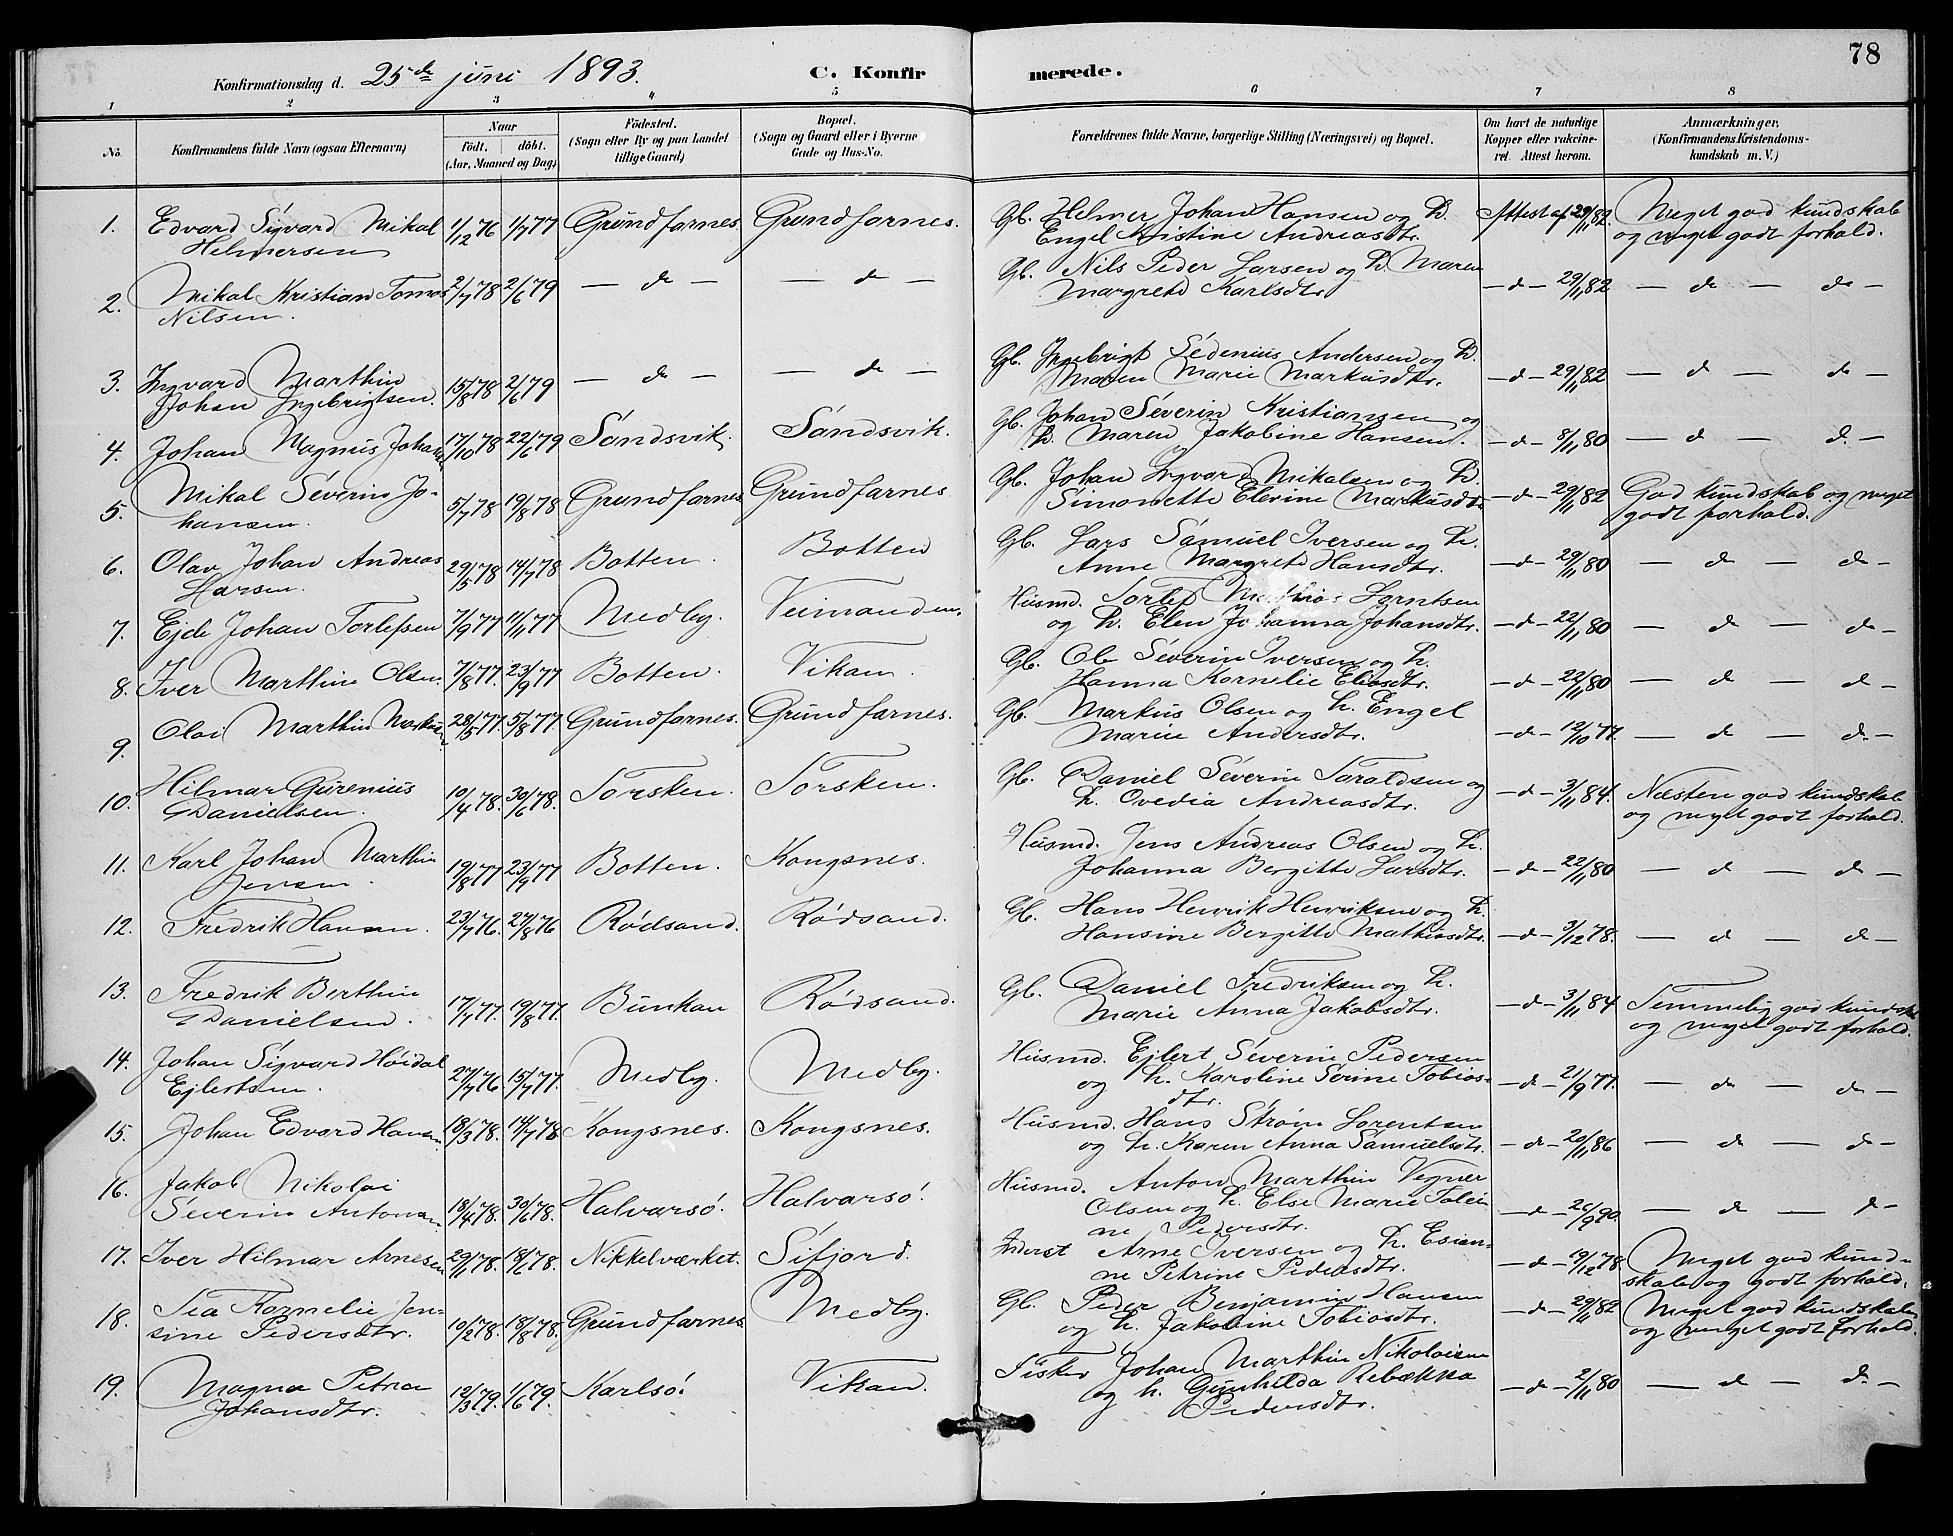 78
Konfirmationsdag d. 25de juni 1893. C. Konfir merede.
1 2 3 4 5 6 7 8
No. Konfirmandens fulde Navn (ogsaa Efternavn) Naar födt. döbt. (Aar, Maaned og Dag) Födested. (Sogn eller By og paa Landet tillige Gaard) Bopæl. (Sogn og Gaard eller i Byerne Gade og Hus-No. Forældrenes fulde Navne, borgerlige Stilling (Næringsvei) og Bopæl. Om havt de naturlige Kopper eller vakcineret. Attest herom. Anmærkninger. (Konfirmandens Kristendomskundskab m. V.)
1. Edvard Sigvard Mikal 1/12 76 1/7 77 Grundfarnes. Grundfarnes. Gb. Helmer Johan Hansen og h. Attest af 29/11 82. Meget god kundskab
Helmersen Engel Kristine Andreasdtr. og meget godt forhold.
2. Mikal Kristian Tomas 2/7 78 2/6 79 — do — — do — Gb. Nils Peder Larsen og h. Maren — d — 29/11 82 — do — do —
Nilsen. Margrete Karlsdtr.
3. Ingvard Marthin 15/8 78 2/6 79 — do — — do — Gb. Ingebrigt Sedenius Andersen og h. — d — 29/11 82 — d — do —
Johan Ingebrigtsen. Maren Marie Markusdtr.
4. Johan Magnus Johansen 17/10 78 22/6 79 Sandsvik. Sandsvik. Gb. Johan Severin Kristiansen og — d — 8/11 80 — d — d. —
h. Maren Jakobine Hansen.
5. Mikal Severin Jo- 5/7 78 19/8 78 Grundfarnes Grundfarnes Gb. Johan Ingvard Mikalsen og h. — d — 29/11 82 God kundskab og meget
hansen. Simonette Elevine Markusdtr. godt forhold.
6. Olav Johan Andreas 29/5 78 14/7 78 Botten. Botten Gb. Lars Samuel Iversen og h. — d — 29/11 80 — do — do —
Larsen. Anne Margrete Hansdtr.
7. Ejde Johan Torlefsen 7/9 77 11/11 77 Medby. Husmd. Torlef Lorntsen — d — 22/11 80 — d — do —
og h. Elen Johanna Johansdtr.
8. Iver Marthin Olsen. 7/8 77. 23/9 77 Botten. Vikan. Gb. Ole Severin Iversen og h. — d — 22/11 80 — d — d —
Hanna Kornelie Eliasdtr.
9. Olai Marthin Markusen 28/5 77. 5/8 77 Grundfarnes. Grundfarnes. Gb. Markus Olsen og h. Engel — d — 12/10 77. — d — d. —
Marie Andersdtr.
10. Hilmar Gurenius 10/4 78. 30/6 78. Torsken. Torsken. Gb. Daniel Severin Taraldsen og — d — 3/11 84. Næsten god kundskab
Danielsen. h. Ovedia Andreasdtr. og meget godt forhold.
11. Karl Johan Marthin 19/8 77 23/9 77 Botten. Kongsnes. Husmd. Jens Andreas Olsen og h. — d — 22/11 80 — d — d —
Jensen. Johanna Bergitte Larsdtr.
12. Fredrik Hansen. 23/7 76. 27/8 76 Rödsand. Rödsand. Gb. Hans Henrik Henriksen og h. — d — 3/12 78. — d — d —
Hansine Bergitte Mathiasdtr.
13. Fredrik Berthin 17/7 77. 19/8 77. Bunkan Rödsand. Gb. Daniel Fredriksen og h. — d — 3/11 84 Temmelig god kundskab
Danielsen. Marie Anna Jakobsdtr. og meget godt forhold.
14. Johan Sigvard Höidal 27/7 76 15/7 77. Medby. Medby. Husmd. Ejlert Severin Pedersen — d — 2/9 77. — do — do —
Ejlertsen. og h. Karoline Serine Tobias-
dtr.
15. Johan Edvard Hansen 18/3 78. 14/7 78 Kongsnes. Kongsnes. Husmd. Hans Ström Lorentsen — d — 20/11 86 — d — d —
og h. Karen Anna Samuelsdtr.
16. Jakob Nikolai 18/4 78. 30/6 78. Halvarsö. Halvarsö. Husmd. Anton Marthin Vegner — d — 26/9 90. — d — d —
Severin Antonsen Olsen og h. Else Marie
ne Pedersdtr.
17. Iver Hilmar Arnesen 29/1 78. 18/6 78. Nikkelværket. Sifjord. Inderst Arne Iversen og h. Esian- — d — 19/12 78. Meget god kund-
ne Petrine Pedersdtr. skab og godt forhold.
18. Tea Kornelie Jen- 10/2 78. 18/8 78. Grundfarnes Medby. Gb. Peder Benjamin Hansen — d — 29/11 82 Meget god kundskab
sine Pedersdtr. og h. Jakobine Tobiasdtr. og meget godt forhold.
19. Magna Petra 12/3 79. 1/6 79. Karlsö. Vikan. Fisker Johan Marthin Nikolaisen — d — 2/11 80 — d — d. —
Johansdtr. og h. Gunhilda Rebækka
Pedersdtr.